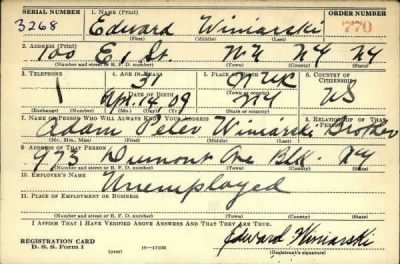 SERIAL NUMBER 1. NAME (Print) ORDER NUMBER
3268 Edward Winiarski 770
(First) (Middle) (Last)
2. ADDRESS (Print)
100 E St. N.Y. N.Y. N.Y.
(Number and street or R. F. D. number) (Town) (County) (State)
3. TELEPHONE 4. AGE IN YEARS 5. PLACE OF BIRTH 6. COUNTRY OF CITIZENSHIP
31
DATE OF BIRTH
Apr. 14 09 NY US
(Town or county)
(Mo.) (Day) (Yr.) (State or country)
7. NAME OF PERSON WHO WILL ALWAYS KNOW YOUR ADDRESS 8. RELATIONSHIP OF THAT PERSON
Adam Peter Winiarski Brother
(Mr., Mrs., Miss) (First) (Middle) (Last)
9. ADDRESS OF THAT PERSON
973 Dumont Ave Bkl. NY
(Number and street or R. F. D. number) (Town) (County) (State)
10. EMPLOYER'S NAME
Unemployed
11. PLACE OF EMPLOYMENT OR BUSINESS
(Number and street or R. F. D. number) (Town) (County) (State)
I AFFIRM THAT I HAVE VERIFIED ABOVE ANSWERS AND THAT THEY ARE TRUE.
REGISTRATION CARD
D. S. S. Form 1 (over) Edward Winiarski
(Registrant's signature)